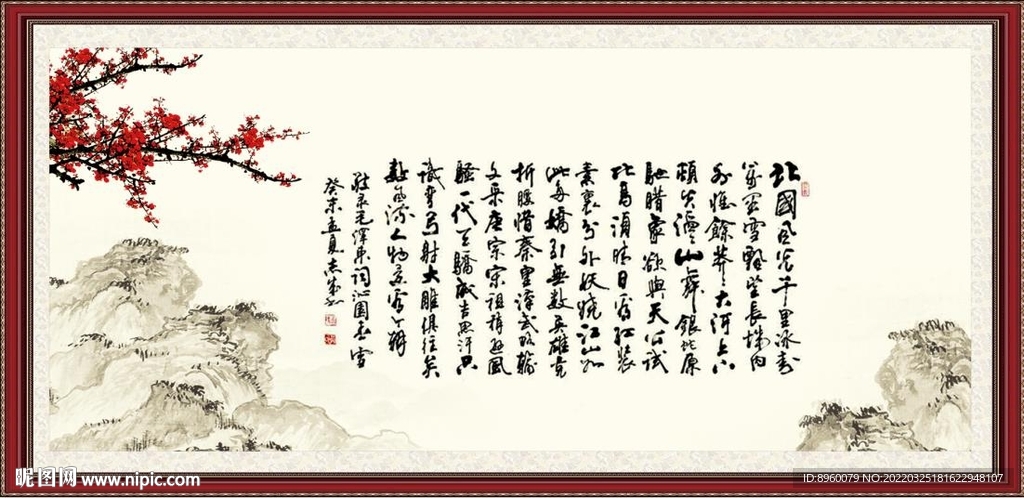 北國風光千里冰封
萬里雪飄望長城內
外惟餘莽莽大河上下
頓失滔滔山舞銀蛇原
馳腊象欲與天公試
比高須晴日看紅裝
素裹分外妖嬈江山如
此多嬌引無數英雄竞
折腰惜秦皇漢武略輸
文采唐宗宋祖稍遜風
騷一代天驕成吉思汗只
識彎弓射大雕俱往矣
數風流人物還看今朝
毛澤東詞沁園春雪
癸未孟夏
昵图网 www.nipic.com
ID:8960079 NO:20220325181622948107